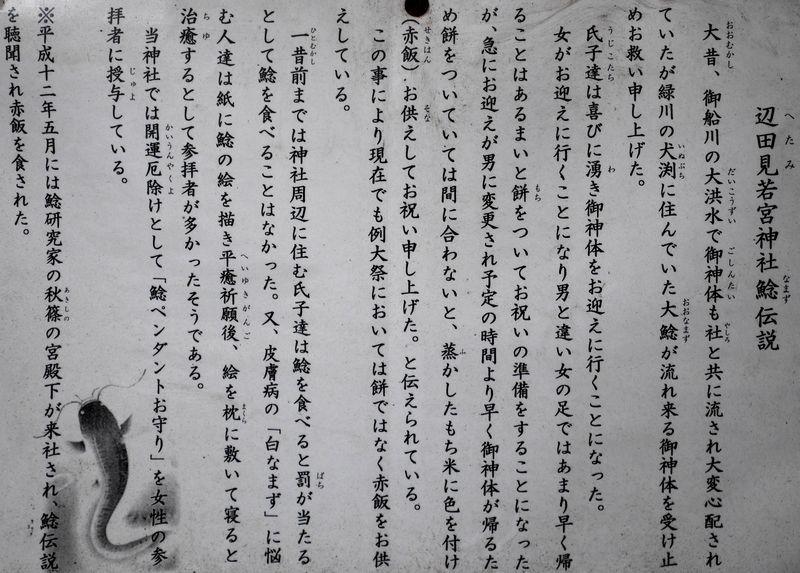 辺田見若宮神社鯰伝説
大昔、御船川の大洪水で御神体も社と共に流され大変心配され
ていたが緑川の犬渕に住んでいた大鯰が流れ来る御神体を受け止
めお救い申し上げた。
氏子達は喜びに湧き御神体をお迎えに行くことになった。
女がお迎えに行くことになり男と違い女の足ではあまり早く帰
ることはあるまいと餅をついてお祝いの準備をすることになった
が、急にお迎えが男に変更され予定の時間より早く御神体が帰るた
め餅をついていては間に合わないと、蒸かしたもち米に色を付け
(赤飯)お供えしてお祝い申し上げた。と伝えられている。
この事により現在でも例大祭においては餅ではなく赤飯をお供
えしている。
一昔前までは神社周辺に住む氏子達は鯰を食べると罰が当たる
として鯰を食べることはなかった。又、皮膚病の「白なまず」に悩
む人達は紙に鯰の絵を描き平癒祈願後、絵を枕に敷いて寝ると
治癒するとして参拝者が多かったそうである。
当神社では開運厄除けとして「鯰ペンダントお守り」を女性の参
拝者に授与している。
※平成十二年五月には鯰研究家の秋篠の宮殿下が来社され、鯰伝説
を聴聞され赤飯を食された。